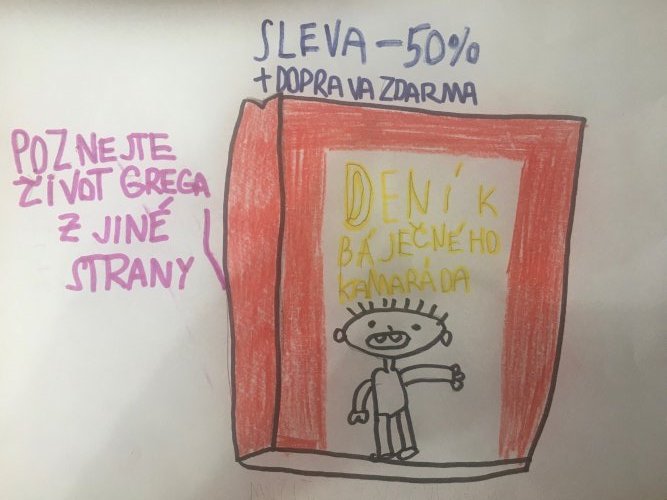 SLEVA -50%
+ DOPRAVA ZDARMA
POZNEJTE
ŽIVOT GREGA
Z JINÉ
STRANY
DENÍK
BÁJEČNÉHO
KAMARÁDA